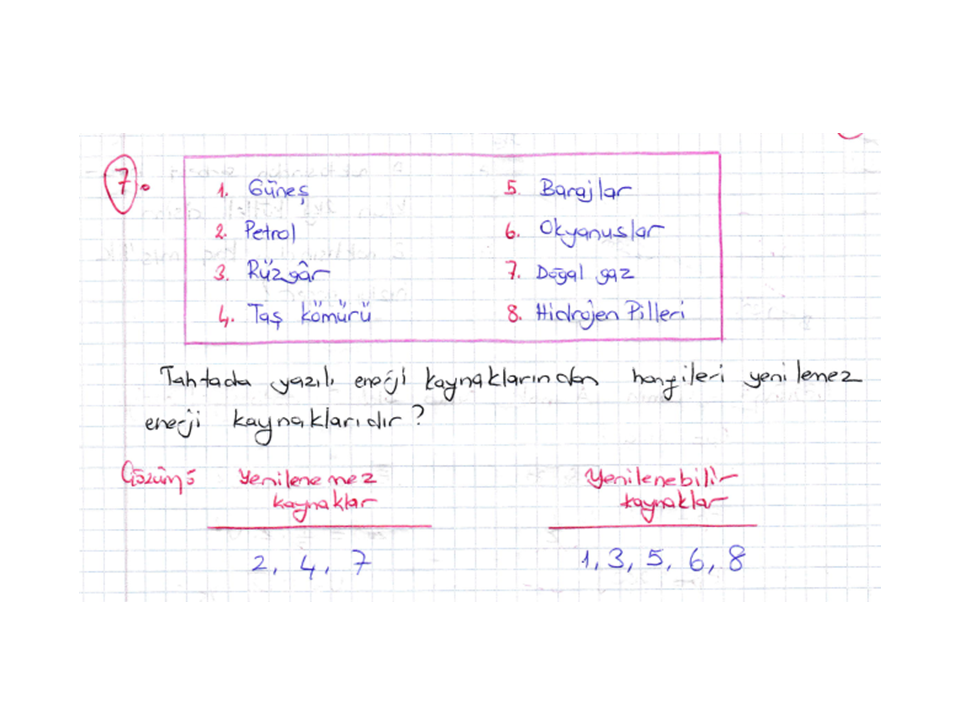 7.
1. Güneş
2. Petrol
3. Rüzgâr
4. Taş kömürü
5. Barajlar
6. Okyanuslar
7. Doğal gaz
8. Hidrojen Pilleri
Tahtada yazılı enerji kaynaklarından hangileri yenilemez
enerji kaynaklarıdır?
Çözüm:
Yenilenemez
kaynaklar
2, 4, 7
Yenilenebilir
kaynaklar
1, 3, 5, 6, 8